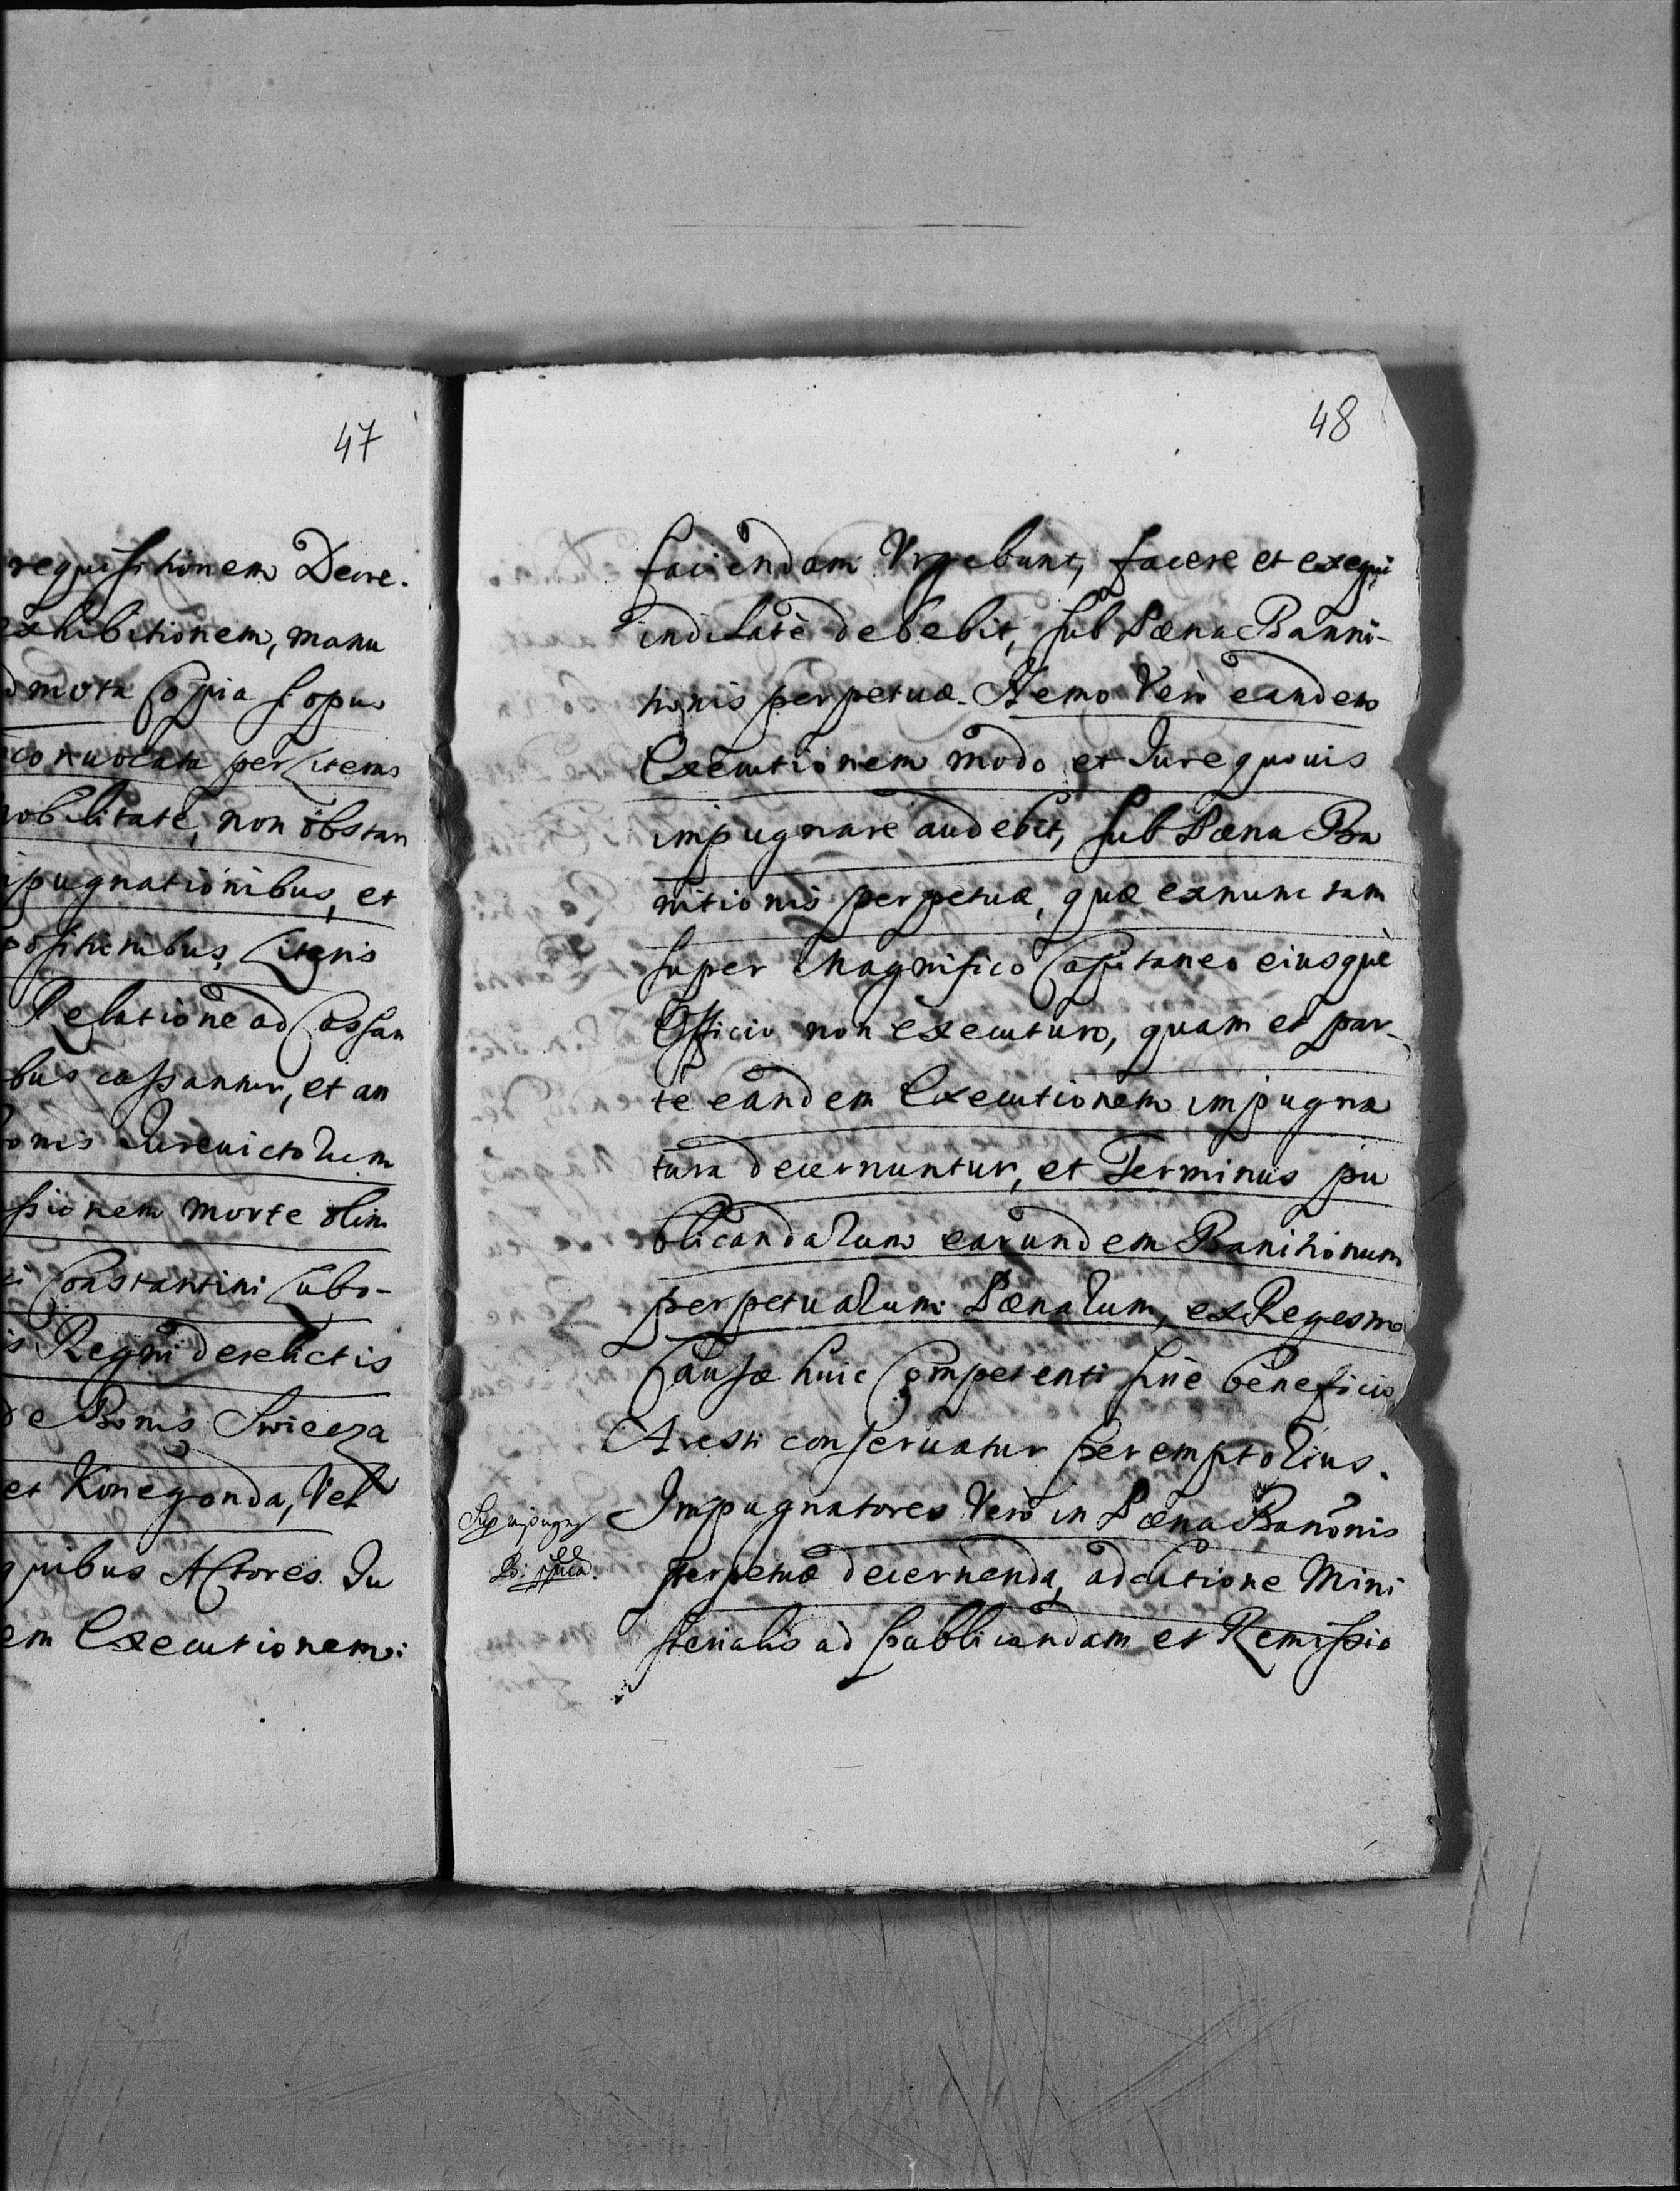 47
requisitionem Decre.
exhibitionem, manu
mota Copia s opus
conuocata per Literas
nobilitate, non obstan
pugnationibus, et
positionibus, Literis
Relatione ad Cassan
bus cassantur, et an
onis Jureuictorum
ssionem morte olim
Constantini Lubo-
s Regni derelictis
de Bonis Swieeza
et Konegonda, Vel
quibus Actores Ju
em Executionem:
48
faciendam Vrgebunt, facere et exequi
indilatè debebit, sub Pæna Banni-
tionis perpetuæ. Nemo Verò eandem
Executionem modo et Jure quouis
impugnare audebit, sub Pæna Ba
nitionis perpetuæ, quæ exnunc tam
super Magnifico Capitaneo eiusque
Officio non executuro, quam et par-
te eandem Executionem impugna
tura decernuntur, et Terminus pu
blicandarum earundem Banitionum
perpetuarum Pænarum, ex Regestro
Causæ huic Competenti sine beneficio
Aresti conseruatur peremptorius.
Impugnatores Verò in Pæna Banōnis
perpetuæ decernenda, adcitione Mini
sterialis ad publicandam et Remissio